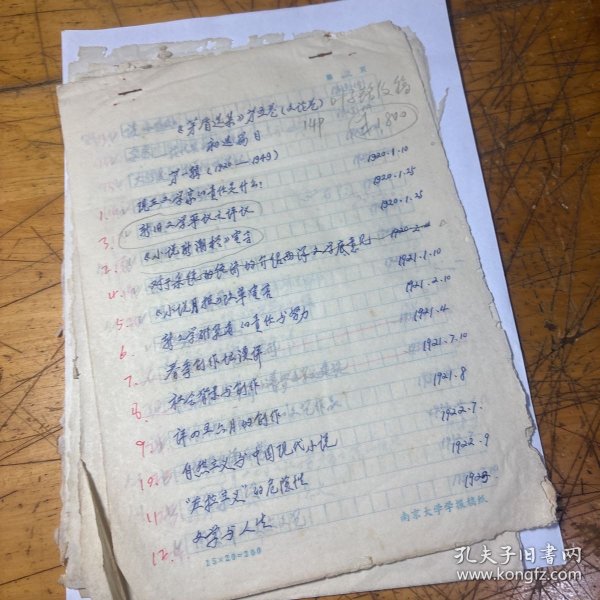 第 页
《茅盾选集》第五卷(文论卷)
14P
初选篇目
第一辑(1920—1949)
1. 现在文学家的责任是什么? 1920.1.10
3. 新旧文学平议之评议 1920.1.25
2. 《小说新潮栏》宣言 1920.1.25
4. 对于系统的经济的介绍西洋文学底意见 1920.2.
5. 《小说月报》改革宣言 1921.1.10
6. 新文学研究者的责任与努力 1921.2.10
7. 春季创作坛漫评 1921.4
8. 社会背景与创作 1921.7.10
9. 评四五六月的创作 1921.8
10. 自然主义与中国现代小说 1922.7.
11. “左拉主义”的危险性 1922.9
12. 文学与人生 192
15×20=300
南京大学学报稿纸
孔夫子旧书网
www.kongfz.com